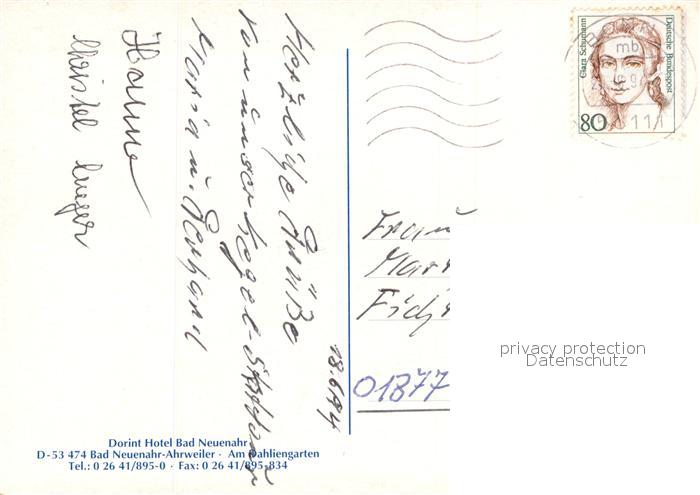 18.6.94
Herzliche Grüße
von unser Kegel-
Maria u.
Hanne
Christel
Frau
Mar
01877
Clara Schumann
Deutsche Bundespost
80
mb
111
privacy protection
Datenschutz
Dorint Hotel Bad Neuenahr
D-53 474 Bad Neuenahr-Ahrweiler · Am Dahliengarten
Tel.: 0 26 41/895-0 · Fax: 0 26 41/895-834